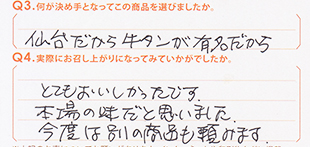 Q3.何が決め手となってこの商品を選びましたか。
仙台だから牛タンが有名だから
Q4.実際にお召し上がりになってみていかがでしたか。
とてもおいしかったです。
本場の味だと思いました。
今度は別の商品も頼みます。